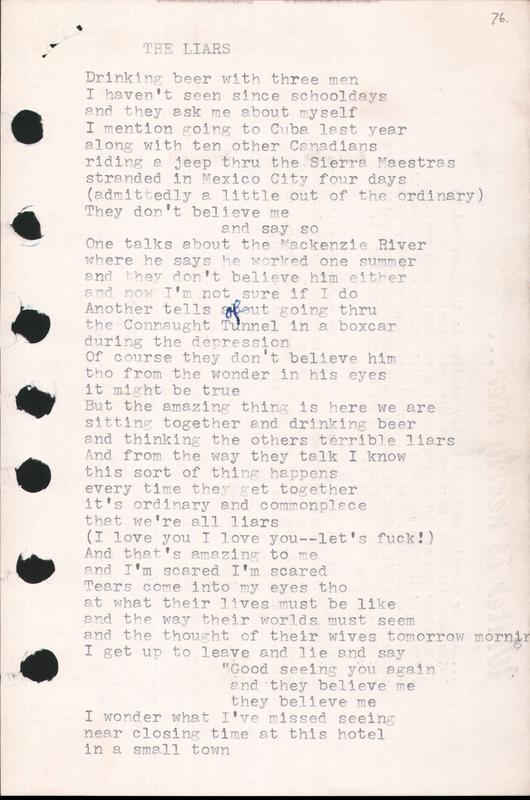 76.
THE LIARS
Drinking beer with three men
I haven't seen since schooldays
and they ask me about myself
I mention going to Cuba last year
along with ten other Canadians
riding a jeep thru the Sierra Maestras
stranded in Mexico City four days
(admittedly a little out of the ordinary)
They don't believe me
and say so
One talks about the Mackenzie River
where he says he worked one summer
and they don't believe him either
and now I'm not sure if I do
Another tells about of going thru
the Connaught Tunnel in a boxcar
during the depression
Of course they don't believe him
tho from the wonder in his eyes
it might be true
But the amazing thing is here we are
sitting together and drinking beer
and thinking the others terrible liars
And from the way they talk I know
this sort of thing happens
every time they get together
it's ordinary and commonplace
that we're all liars
(I love you I love you--let's fuck!)
And that's amazing to me
and I'm scared I'm scared
Tears come into my eyes tho
at what their lives must be like
and the way their worlds must seem
and the thought of their wives tomorrow mornin
g
I get up to leave and lie and say
"Good seeing you again
and they believe me
they believe me
I wonder what I've missed seeing
near closing time at this hotel
in a small town